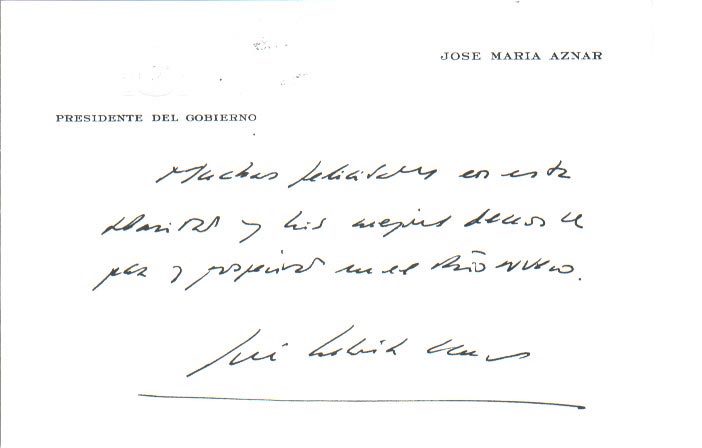 JOSE MARIA AZNAR
PRESIDENTE DEL GOBIERNO
Muchas felicidades en esta
Navidad y mis mejores deseos de
paz y prosperidad en el Año nuevo.
José María Aznar